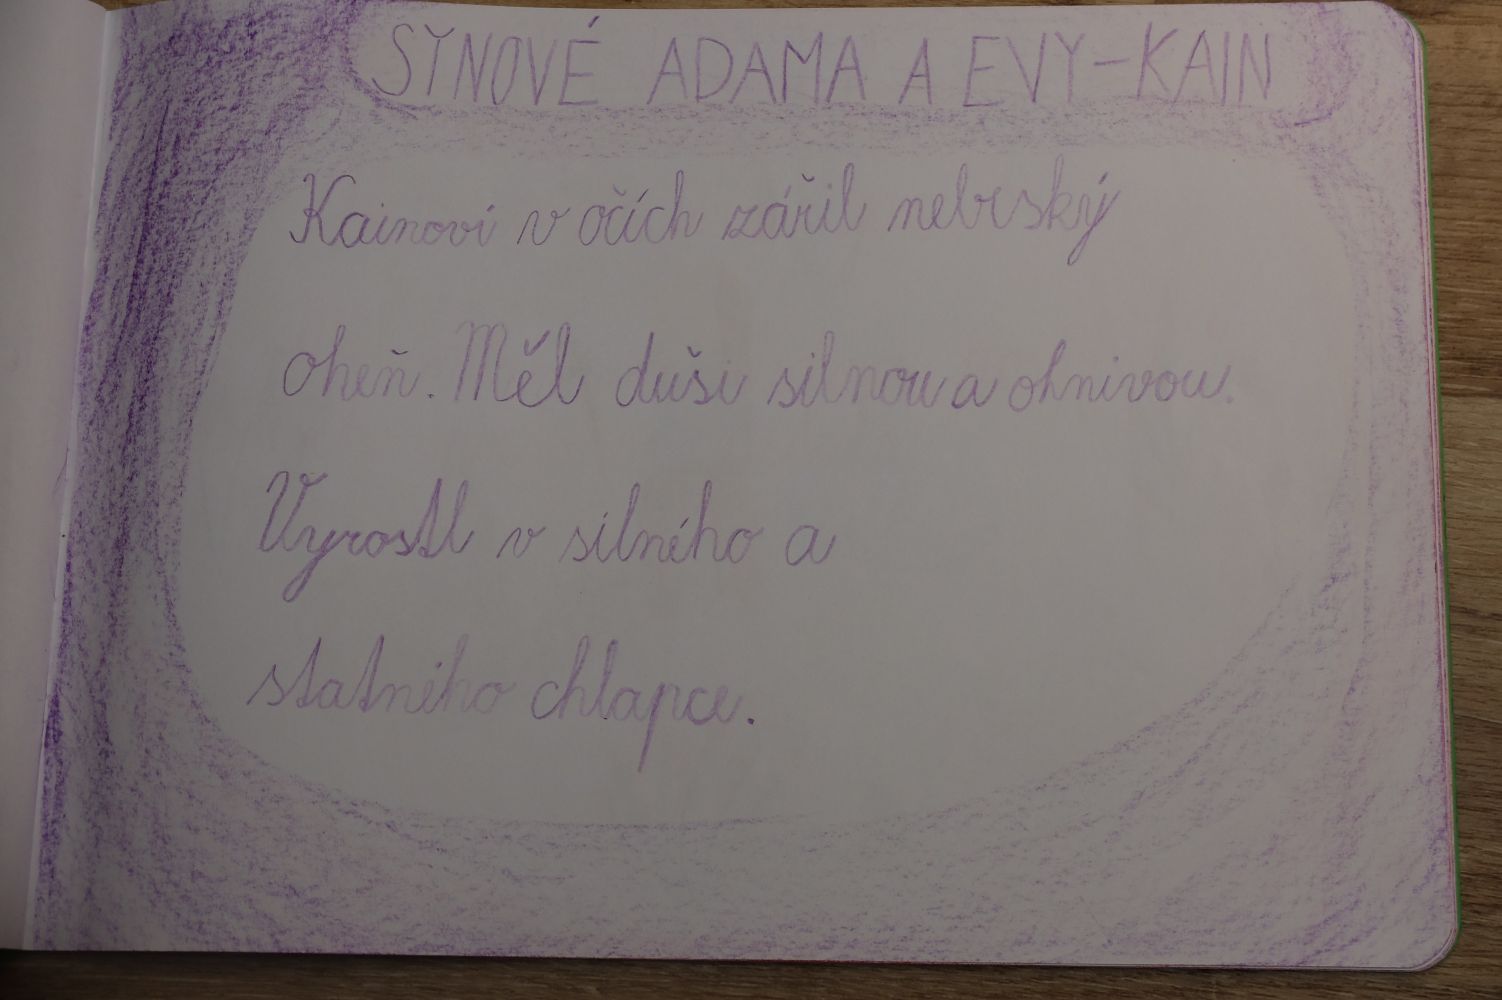 SYNOVÉ ADAMA A EVY-KAIN
Kainovi v očích zářil nebeský
oheň. Měl duši silnou a ohnivou.
Vyrostl v silného a
statného chlapce.